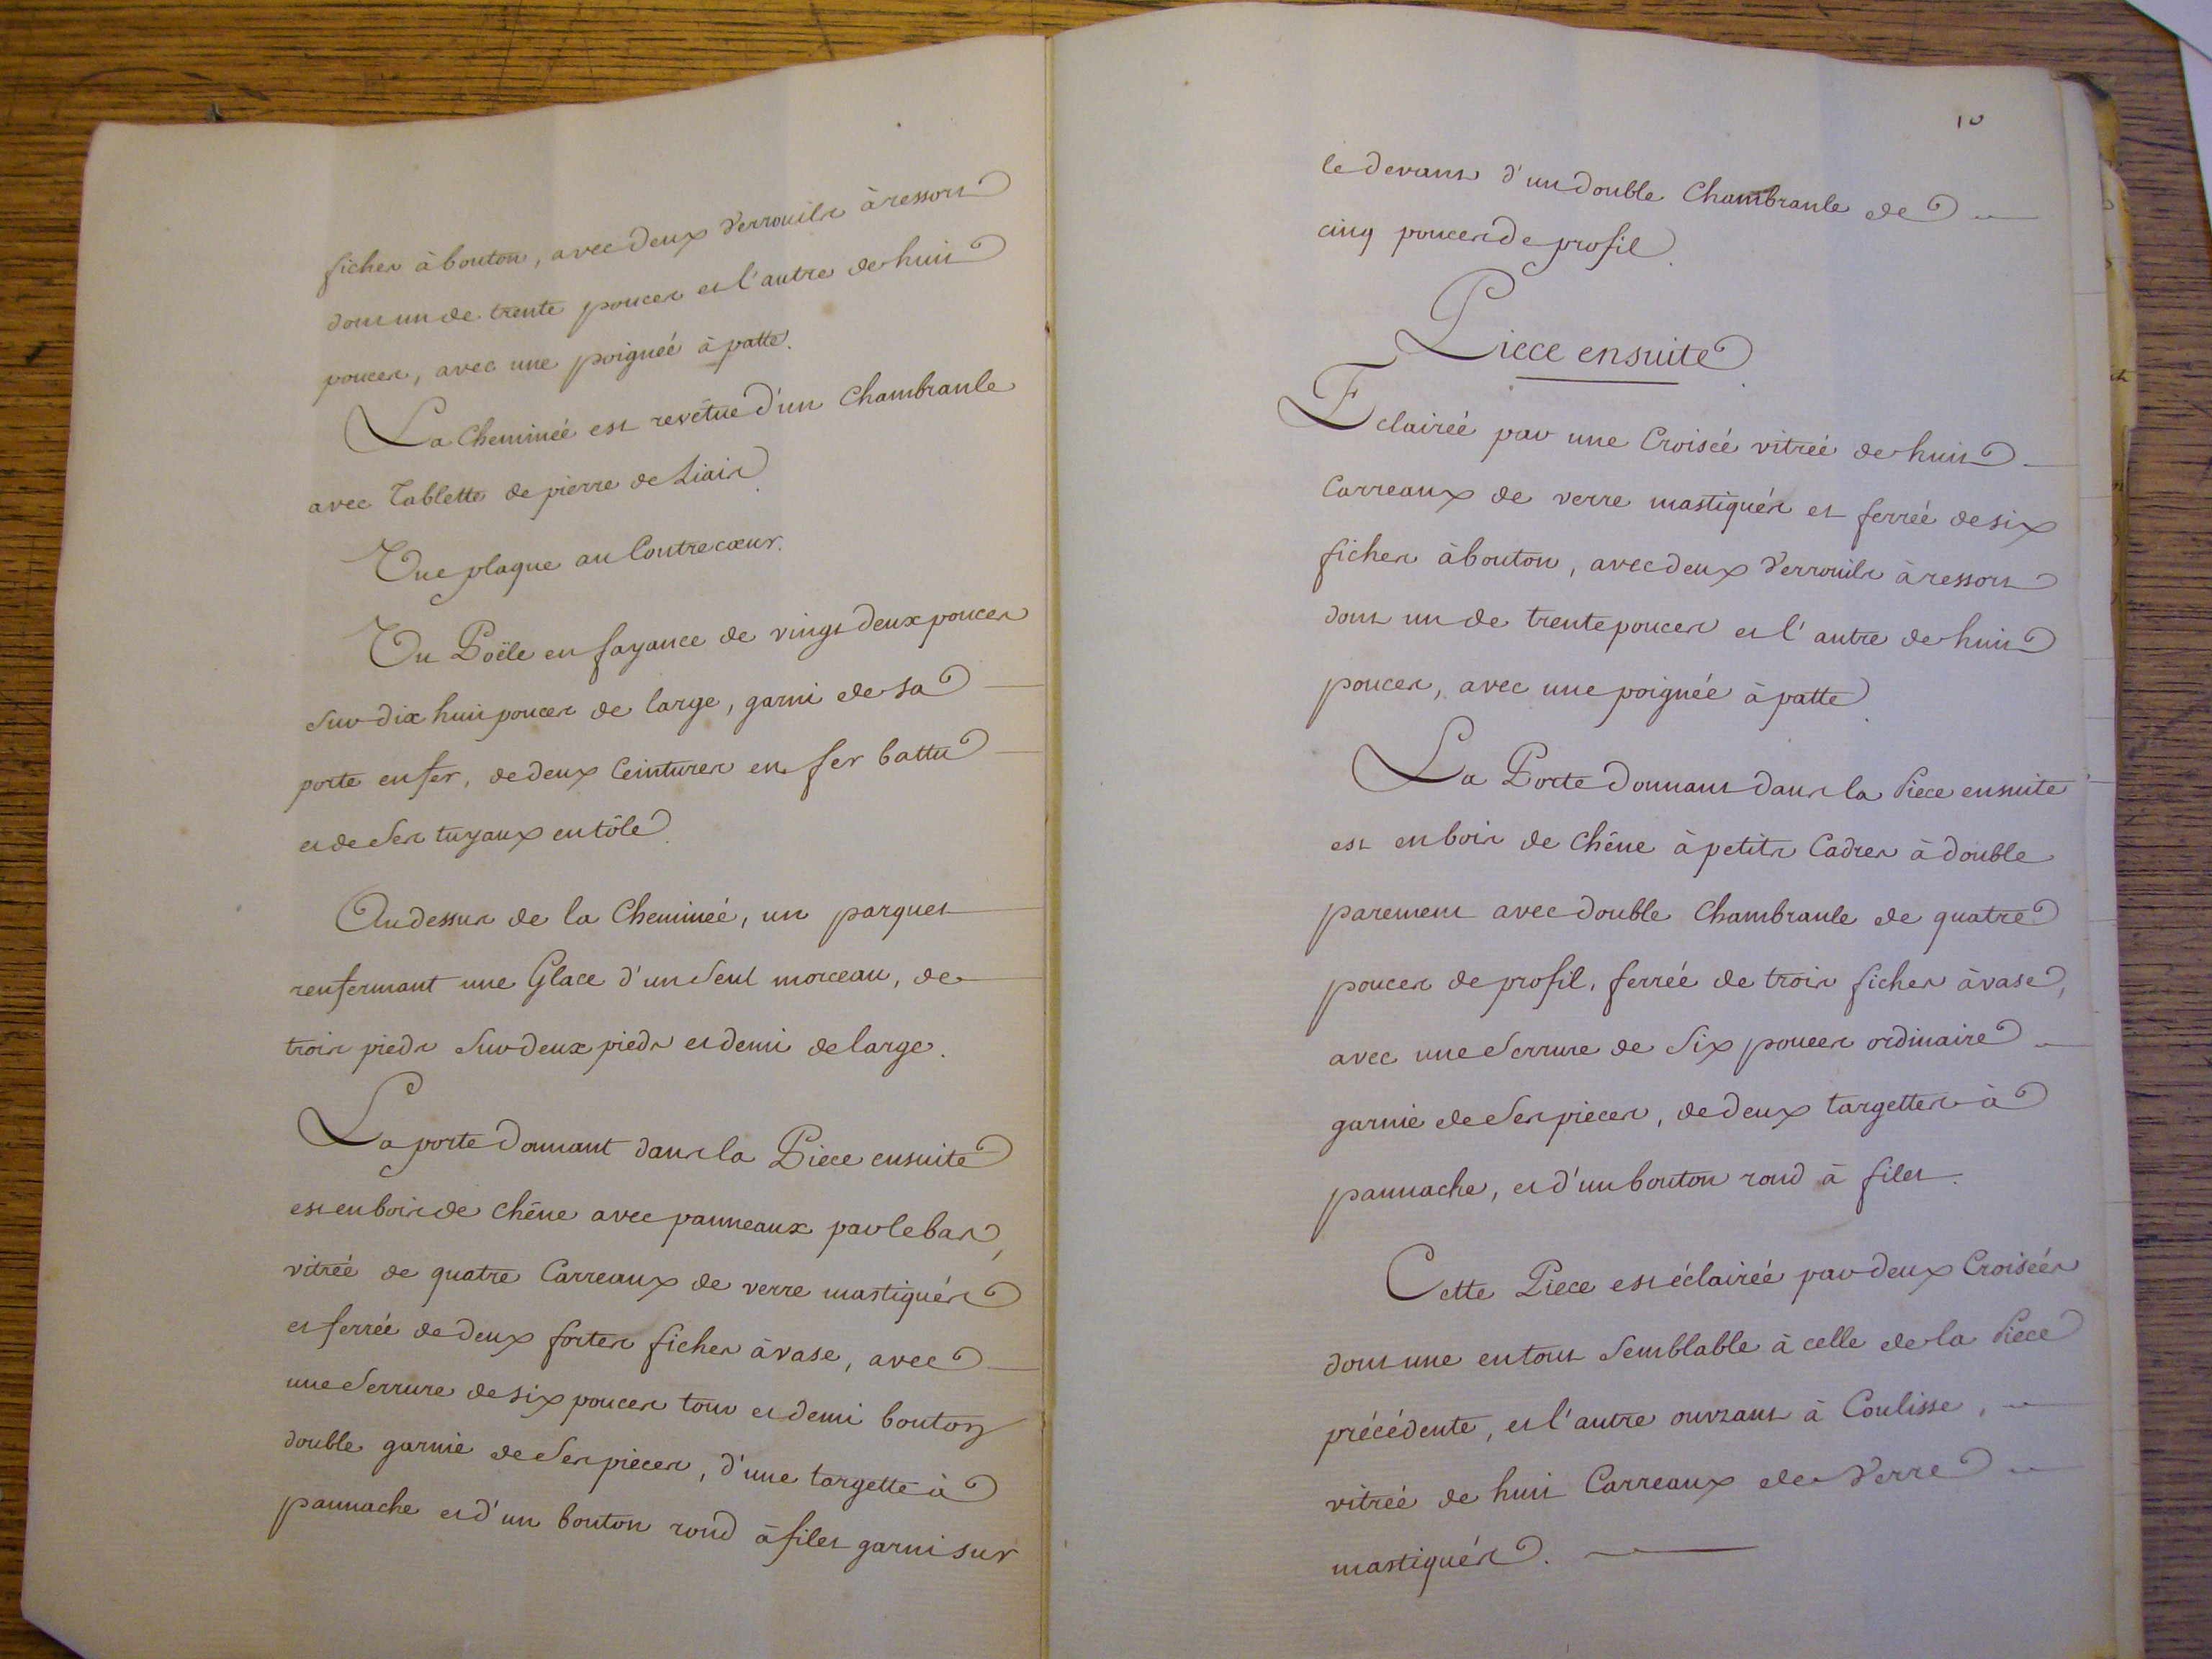 fiches à bouton, avec deux Verrouils à ressort
dont un de trente pouces et l'autre de huit
pouces, avec une poignéé à patte.
La Cheminéé est revêtue d'un Chambranle
avec Tablette de pierre de Liais.
Une plaque au Contrecœur.
Un Poële en fayance de vingt deux pouces
Sur dix huit pouces de large, garni de sa
porte en fer, de deux Ceintures en fer battu
et de Ses tuyaux en tôle.
Au dessus de la Cheminéé, un parquet
renfermant une Glace d'un Seul morceau, de
trois pieds Sur deux pieds et demi de large.
La porte donnant dans la Piece ensuite
est en bois de Chêne avec panneaux par le bas,
vitréé de quatre Carreaux de verre mastiqués
et ferréé de deux fortes fiches à vase, avec
une Serrure de six pouces tour et demi bouton
double garnie de Ses pieces, d'une targette à
pannache et d'un bouton rond à filet garni sur
10
le devant d'un double Chambranle de
cinq pouces de profil.
Piece ensuite.
Eclairéé par une Croiséé vitréé de huit
Carreaux de verre mastiqués et ferréé de six
fiches à bouton, avec deux Verrouils à ressort
dont un de trente pouces et l'autre de huit
pouces, avec une poignée à patte.
La Porte donnant dans la Piece ensuite
est en bois de Chêne à petits Cadres à double
parement avec double Chambranle de quatre
pouces de profil, ferréé de trois fiches à vase,
avec une Serrure de Six pouces ordinaire
garnie de Ses pieces, de deux targettes à
pannache, et d'un bouton rond à filet.
Cette Piece est éclairéé par deux Croiséés
dont une en tout Semblable à celle de la Piece
précédente, et l'autre ouvrant à Coulisse,
vitréé de huit Carreaux de Verre
mastiqués.